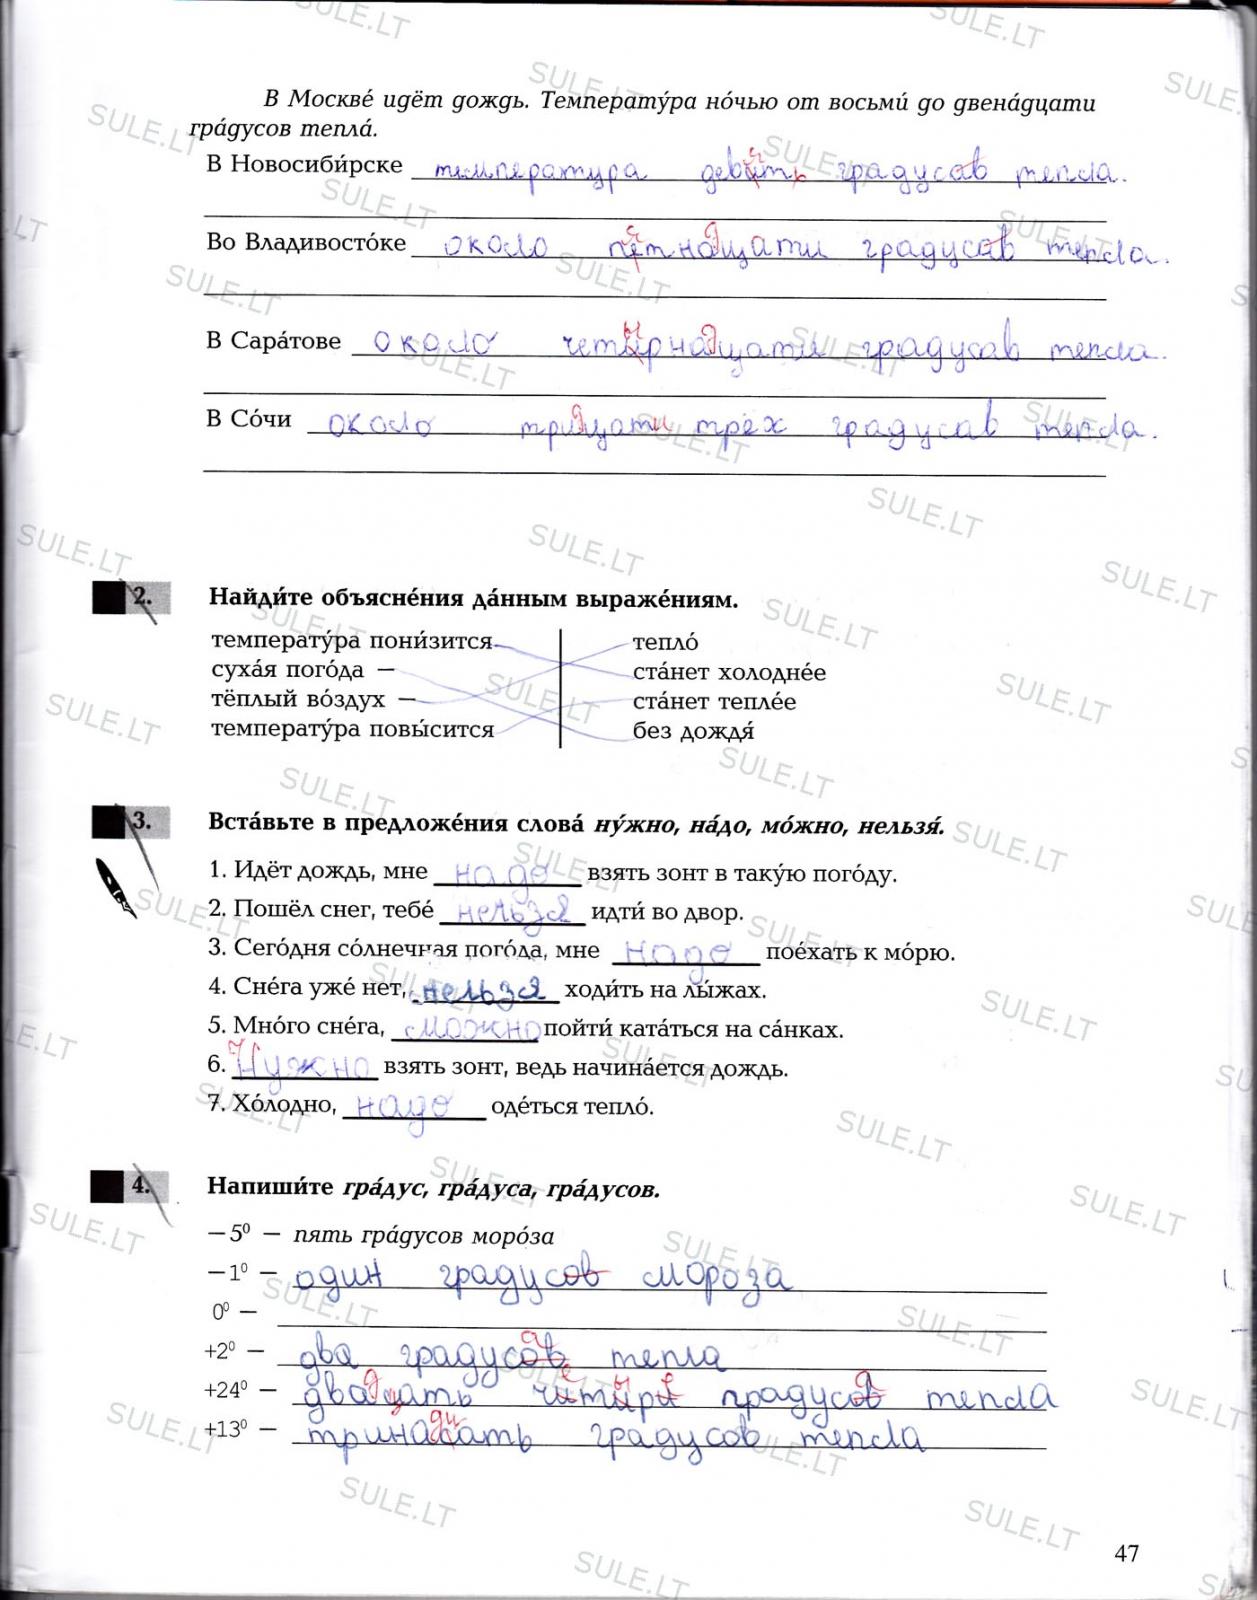 В Москве́ идёт дождь. Температу́ра но́чью от восьми́ до двена́дцати
гра́дусов тепла́.
В Новосиби́рске температура девять градусов тепла.
Во Владивосто́ке около пятнадцати градусов тепла.
В Сара́тове около четырнадцати градусав тепла.
В Со́чи около тридцати трёх градусав тепла.
2. Найди́те объясне́ния да́нным выраже́ниям.
температу́ра пони́зится тепло́
суха́я пого́да – ста́нет холодне́е
тёплый во́здух – ста́нет тепле́е
температу́ра повы́сится без дождя́
3. Вста́вьте в предложе́ния слова́ ну́жно, на́до, мо́жно, нельзя́.
1. Идёт дождь, мне надо взять зонт в таку́ю пого́ду.
2. Пошёл снег, тебе́ нельзя идти́ во двор.
3. Сего́дня со́лнечная пого́да, мне надо пое́хать к мо́рю.
4. Сне́га уже́ нет, нельзя ходи́ть на лы́жах.
5. Мно́го сне́га, можно пойти́ ката́ться на са́нках.
6. Нужно взять зонт, ведь начина́ется дождь.
7. Хо́лодно, надо оде́ться тепло́.
4. Напиши́те гра́дус, гра́дуса, гра́дусов.
–5⁰ – пять гра́дусов моро́за
–1⁰ – один градусов мороза
0⁰ –
+2⁰ – два градуса тепла
+24⁰ – двадцать четыре градуса тепла
+13⁰ – тринадцать градусов тепла
47
SULE.LT